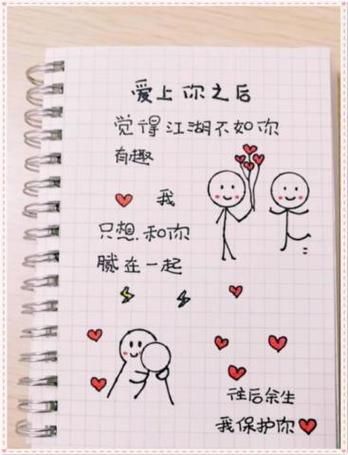 爱上你之后
觉得江湖不如你
有趣
我
只想和你
腻在一起
往后余生
我保护你